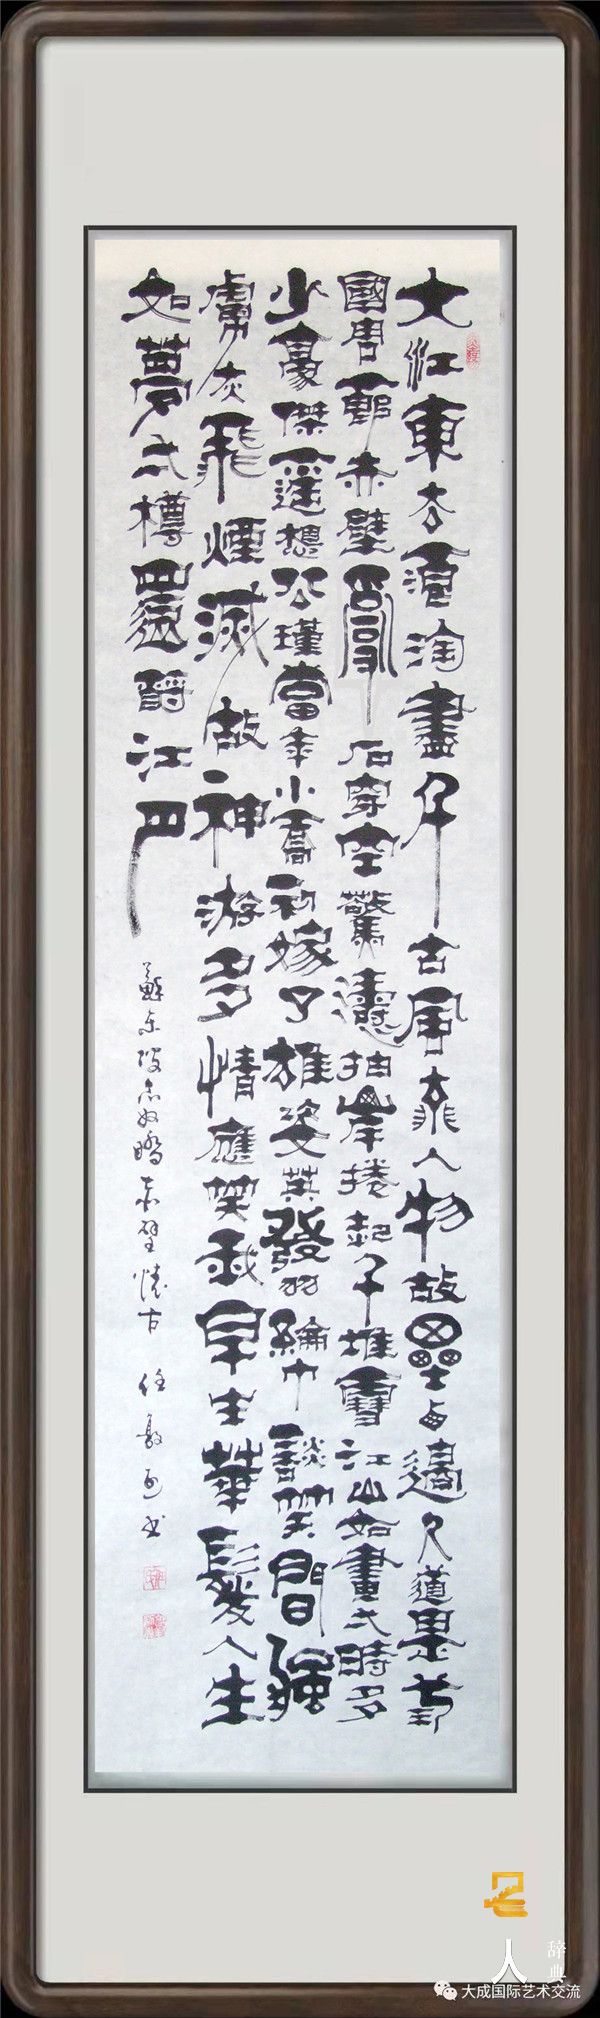 大江東去浪淘盡千古風流人物故壘西邊人道是
國周郎赤壁亂石穿空驚濤拍岸捲起千堆雪江山如畫弌時多
少豪傑遙想公瑾當年小喬初嫁了雄姿英發羽綸巾談笑間強
虜灰飛煙滅故神游多情應笑我早生華髮人生
如夢弌樽還酹江月
蘇東坡念奴嬌赤壁懷古 任
人
辞典
大成国际艺术交流